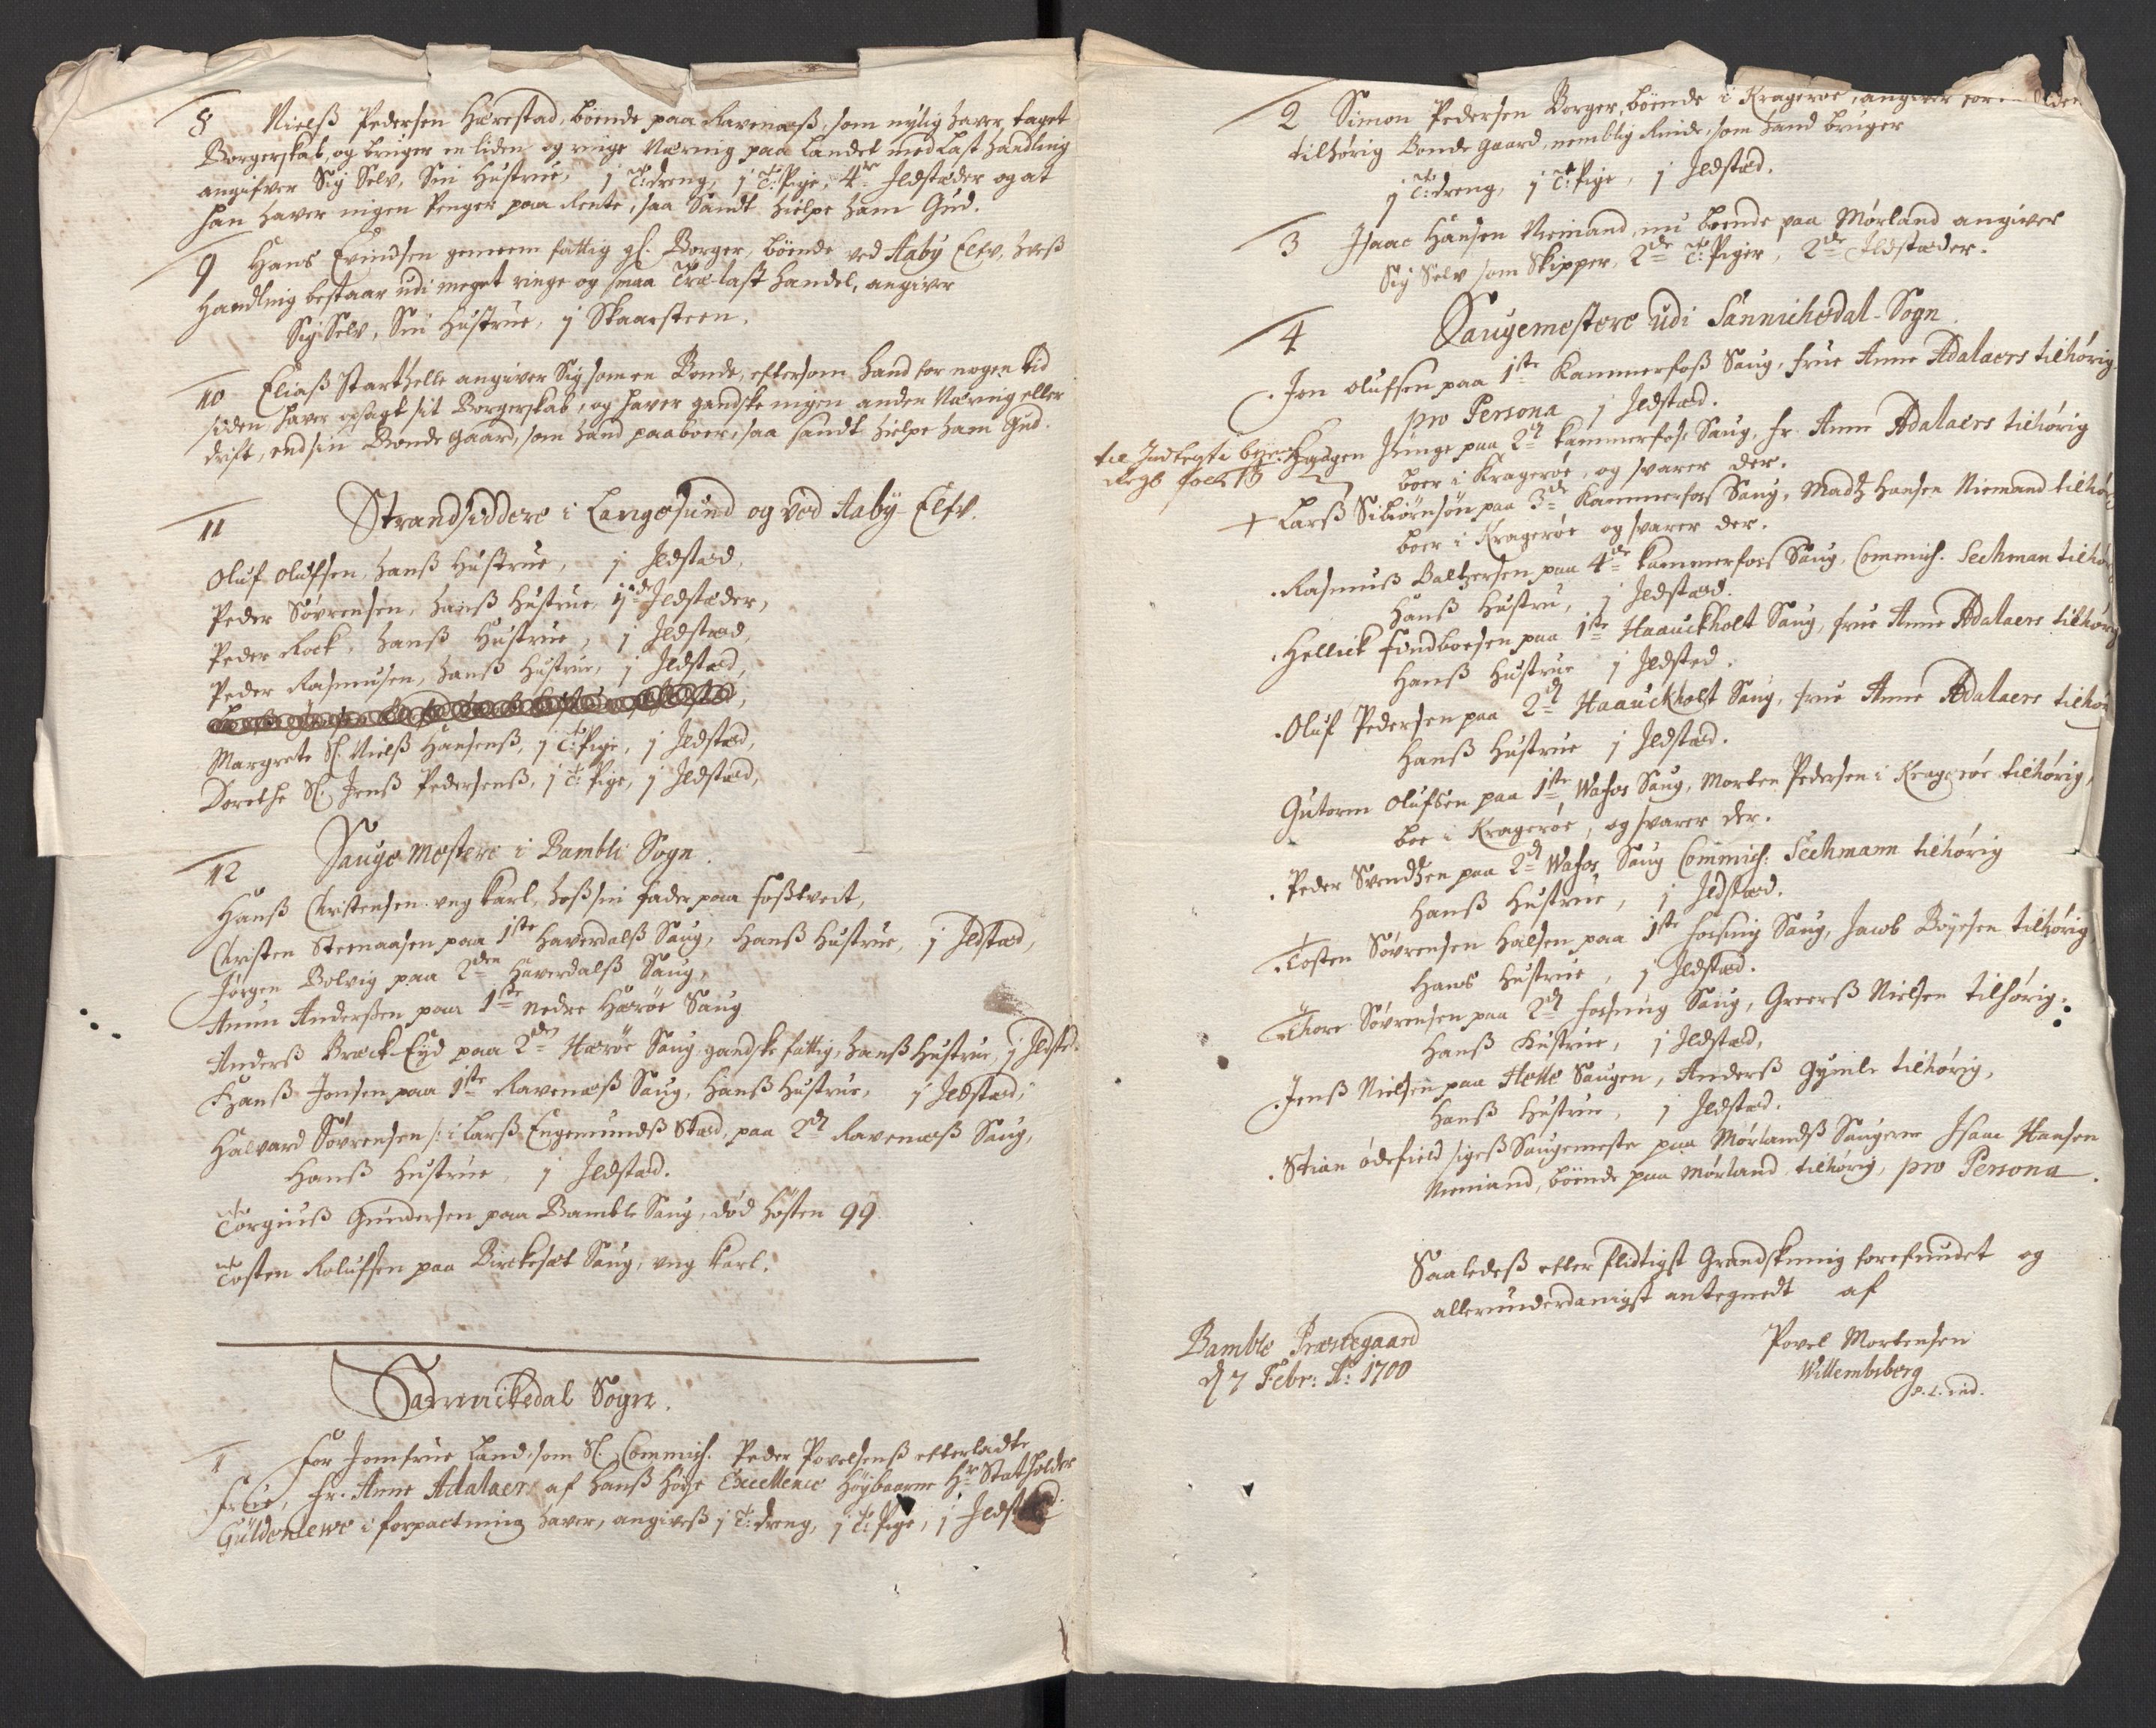 8 Nielß Pedersen Harestad, böende paa Ravenæß, som nÿlig haver taget
Borgerskab, og bruger en liden og ringe Næring paa Landet med Last handling
angifver Sig Selv, Sin Hustrue, j T: dreng, j T: Pige, 4re Ildstæder og at
han haver ingen Penger paa Rente, saa Sandt hielpe ham Gud.
9 Hans Evindsen gemeem fattig gl. Borger, böende ved Aabÿ Elfv, hvß
Handling bestaar udi meget ringe og smaa Træ-last handel, angiver
Sig Selv, Sin Hustrue, j Skaarsteen.
10 Eliaß Starthelle angiver Sig som en Bonde, eftersom hand for nogen tid
siden haver opsagt sit Borgerskab, og haver gandske ingen anden Næring eller
drift, end sin Bonde Gaard, som hand paaboer, saa sandt hielpe ham Gud.
11 Strandsiddere i Langesund og ved Aabÿ-Elfv.
Oluf Olufsen, hanß Hustrue, j Ildstæd,
Peder Sövrensen, hanß Hustrue, ij de Ildstæder,
Peder Rock, hanß Hustrue, j Ildstæd,
Peder Rasmusen, hanß Hustrue, j Ildstæd,
Margrete Sl. Nielß Hansenß, j T: Pige, j Ildstæd,
Dorethe Sl. Jenß Pedersenß, j T: Pige, j Ildstæd,
12 Sauge Mestere i Bamble Sogn.
Hanß Christensen ung karl, hoß sin fader paa Foßtvedt,
Christen Steenaasen paa 1ste Haverdalß Saug, Hanß Hustrue, j Ildstæd,
Jörgen Bolvig paa 2den Haverdalß Saug,
Anun Anderßen paa 1ste nedre Haröe Saug
Anderß Bræck-Eijd paa 2de Haröe Saug, gandske fattig, hanß Hustrue, j Ildsted.
Hanß Jonsen paa 1ste Ravenæß Saug, hanß Hustrue, j Ildstæd,
Halvard Sövrensen /: i Larß Engemundß Stæd, paa 2d Ravenæß Saug,
Hanß Hustrue, j Ildstæd.
Torgiuß Gundersen paa Bamble Saug, död Hösten 99
Tosten Rolufsen paa Birckesæt Saug, ung karl.
Sannickedal Sogn.
1 For Jomfrue Land, som Sl. Commish. Peder Povelsenß efterladte
Frue, Fr. Anne Adalaers af hanß Höye Excellence Höÿbaarne Hr Statholder
Gÿldenlewe i forpactning haver, angiveß j T: dreng, j T: Pige, j Ildstæd
2 Simon Pedersen Borger, böende i Krageröe, angiver for
tilhörig Bonde Gaard, nemblig Rinde, som hand bruger
j T: dreng, j T: Pige, j Ildstæd.
3 Isaac Hansen Niemand, nu böende paa Mörland angiver
Sig Selv som Skipper, 2de T: Piger, 2de Ildstæder.
4 Saugemestere udi Sannichedal-Sogn.
Jon Olufsen paa 1ste Kammerfoß Saug, frue Anne Adalaers tilhörig
pro Persona j Ildstæd.
til Indtegte bÿes
Haagen Junge paa 2d Kammerfoß Saug, Fr. Anne Adalaers tilhörig
boer i Krageröe, og svarer der.
+ Larß Sibiörnsön paa 3de Kammerfoß Saug, Madz Hansen Niemand tilhör
boer i Krageröe og svarer der.
Rasmuß Baltzersen paa 4de Kammerfoß Saug, Commish. Sechman tilhör
Hanß Hustru, j Ildstæd.
Hellick Findboesen paa 1ste Haauckholt Saug, frue Anne Adalaers tilhör
Hanß Hustrue j Ildsted.
Oluf Pedersen paa 2d Haauckholt Saug, frue Anne Adalaers tilhör
Hanß Hustrue j Ildstæd.
Gutorm Olufsen paa 1ste Wafos Saug, Morten Pedersen i Krageröe tilhörig,
boe i Krageröe, og svarer der.
Peder Svendtzen paa 2d Wafos Saug Commish: Sechmann tilhörig
Hanß Hustrue, j Ildstæd.
Tosten Sövrensen Halsen paa 1ste Fossing Saug, Jacob Böyesen tilhörig,
Hans Hustrue, j Ildstæd.
Thore Sövrensen paa 2d Fossing Saug, Greerß Nielsen tilhörig.
Hanß Hustrue, j Ildstæd,
Jenß Nielsen paa Helle Saugen, Anderß Gÿmle tilhörig,
Hanß Hustrue, j Ildstæd.
Stian ödefield sigeß Saugemester paa Mörlandß Saugerne Isaac Hansen
Niemand, böende paa Mörland, tilhörig, pro Persona.
Saaledeß efter flidtigst Grandskning forefundet og
allerunderdanigst antegnedt af
Bamble Præstegaard
d 7 Febr: A: 1700
Povel Mortensen
Willembsberg